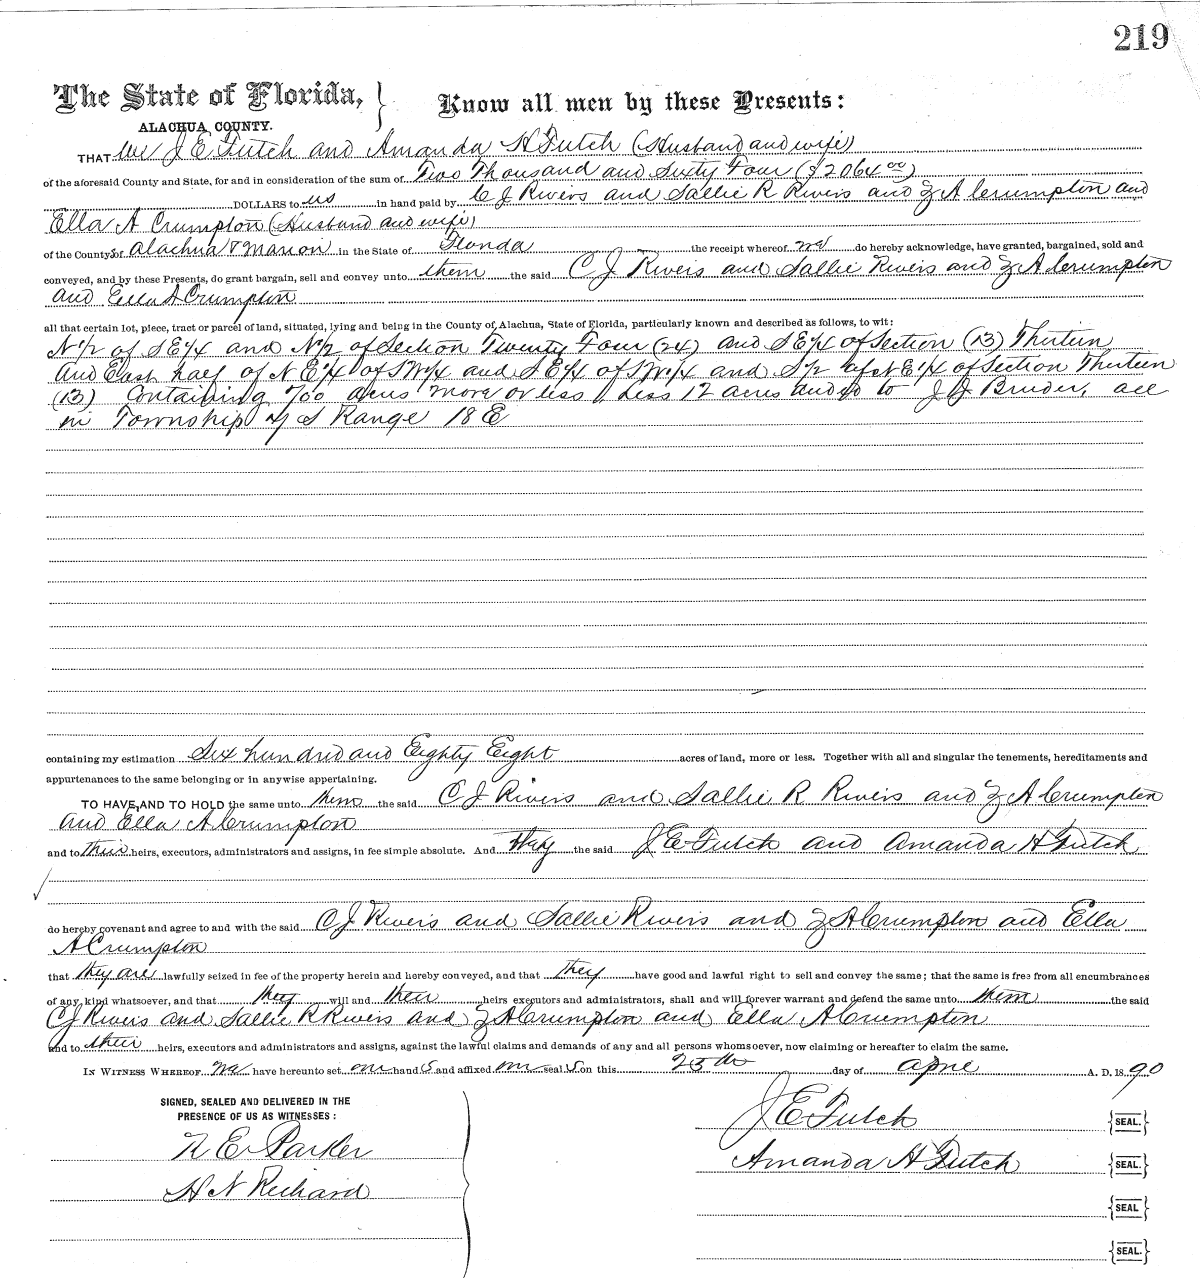 219
The State of Florida, } Know all men by these Presents:
ALACHUA COUNTY.
THAT We J E Futch and Amanda H Futch (Husband and wife)
of the aforesaid County and State, for and in consideration of the sum of Two Thousand and Sixty Four ($2064 00)
DOLLARS to us in hand paid by C J Rivers and Sallie R Rivers and Z A Crumpton and
Ella A Crumpton (Husband and wife)
of the Countys of Alachua & Marion in the State of Florida the receipt whereof we do hereby acknowledge, have granted, bargained, sold and
conveyed, and by these Presents, do grant bargain, sell and convey unto them the said C J Rivers and Sallie Rivers and Z A Crumpton
and Ella A Crumpton
all that certain lot, piece, tract or parcel of land, situated, lying and being in the County of Alachua, State of Florida, particularly known and described as follows, to wit:
N 1/2 of S E 1/4 and N 1/2 of Section Twenty Four (24) and S E 1/4 of Section (13) Thirteen
and East half of N E 1/4 of S W 1/4 and S E 1/4 of S W 1/4 and S 1/2 of N E 1/4 of Section Thirteen
(13) Containing 700 acres more or less, Less 12 acres to J J all
in Township 7 S Range 18 E
containing my estimation Six hundred and Eighty Eight acres of land, more or less. Together with all and singular the tenements, hereditaments and
appurtenances to the same belonging or in anywise appertaining.
TO HAVE, AND TO HOLD the same unto them the said C J Rivers and Sallie R Rivers and Z A Crumpton
and Ella A Crumpton
and to their heirs, executors, administrators and assigns, in fee simple absolute. And they the said J E Futch and Amanda H Futch
do hereby covenant and agree to and with the said C J Rivers and Sallie Rivers and Z A Crumpton and Ella
A Crumpton
that they are lawfully seized in fee of the property herein and hereby conveyed, and that they have good and lawful right to sell and convey the same; that the same is free from all encumbrances
of any kind whatsoever, and that they will and their heirs executors and administrators, shall and will forever warrant and defend the same unto them the said
C J Rivers and Sallie R Rivers and Z A Crumpton and Ella A Crumpton
and to their heirs, executors and administrators and assigns, against the lawful claims and demands of any and all persons whomsoever, now claiming or hereafter to claim the same.
IN WITNESS WHEREOF We have hereunto set our hand S and affixed our seal S on this 25th day of April A. D. 18 90
SIGNED, SEALED AND DELIVERED IN THE
PRESENCE OF US AS WITNESSES:
J E Futch {SEAL.}
N E Parker
Amanda H Futch {SEAL.}
H N Richard
{SEAL}
{SEAL.}